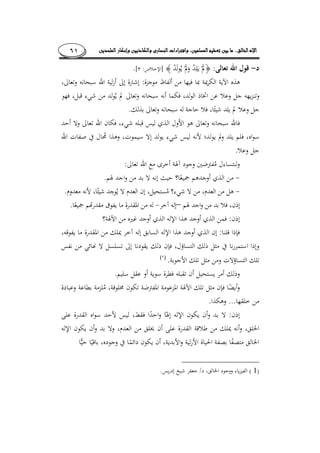 الإله الخالق.. ما بين تعظيم المسلمين، وافتراءات النصارى والكاذبين وإنكار الملحدين ٦١
د- قول الله تعالى: ﴿ لَمْ يَلِدْ وَلَمْ يُولَدْ ﴾ [الإخلاص: ٣].
هذه الآية الكريمة بما فيها من ألفاظ موجزة: إشارة إلى أزلية الله سبحانه وتعالى،
وتنزيهه جل وعلا عن اتخاذ الولد، فكما أنه سبحانه وتعالى لم يُولد من شيء قبل، فهو
جل وعلا لم يلد شيئًا، فلا حاجة له سبحانه وتعالى بذلك.
فالله سبحانه وتعالى هو الأول الذي ليس قبله شيء، فكان الله تعالى ولا أحد
سواه، فلم يلد ولم يولد؛ لأنه ليس شيء يولد إلا سيموت، وهذا مُحال في صفات الله
جل وعلا.
ولنتساءل مُفترضين وجود آلهة أخرى مع الله تعالى:
- من الذي أوجدهم جميعًا؟ حيث إنه لا بد من واجد لهم.
- هل من العدم، من لا شيء؟ مُستحيل، إن العدم لا يُوجد شيئًا، لأنه معدوم.
إذن، فلا بد من واجد لهم –إله آخر- له من المقدرة ما يفوق مقدرتهم جميعًا.
إذن: فمن الذي أوجد هذا الإله الذي أوجد غيره من الآلهة؟
فإذا قلنا: إن الذي أوجد هذا الإله السابق إله آخر يملك من المقدرة ما يفوقه،
وإذا استمررنا في مثل ذلك التساؤل، فإن ذلك يقودنا إلى تسلسل لا نهائي من نفس
تلك التساؤلات ومن مثل تلك الأجوبة.(١)
وذلك أمر يستحيل أن تقبله فطرة سوية أو عقل سليم.
وأيضًا فإن مثل تلك الآلهة المزعومة المفترضة تكون مخلوقة، مُلزمة بطاعة وعبادة
من خلقها... وهكذا.
إذن: لا بد وأن يكون الإله إلهًا واحدًا فقط، ليس لأحد سواه القدرة على
الخلق، وأنه يملك من طلاقة القدرة على أن يخلق من العدم، ولا بد وأن يكون الإله
الخالق متصفًا بصفة الحياة الأزلية والأبدية، أن يكون دائمًا في وجوده، باقيًا حيًّا
( 1 ) الفيزياء ووجود الخالق، د/ جعفر شيخ إدريس.